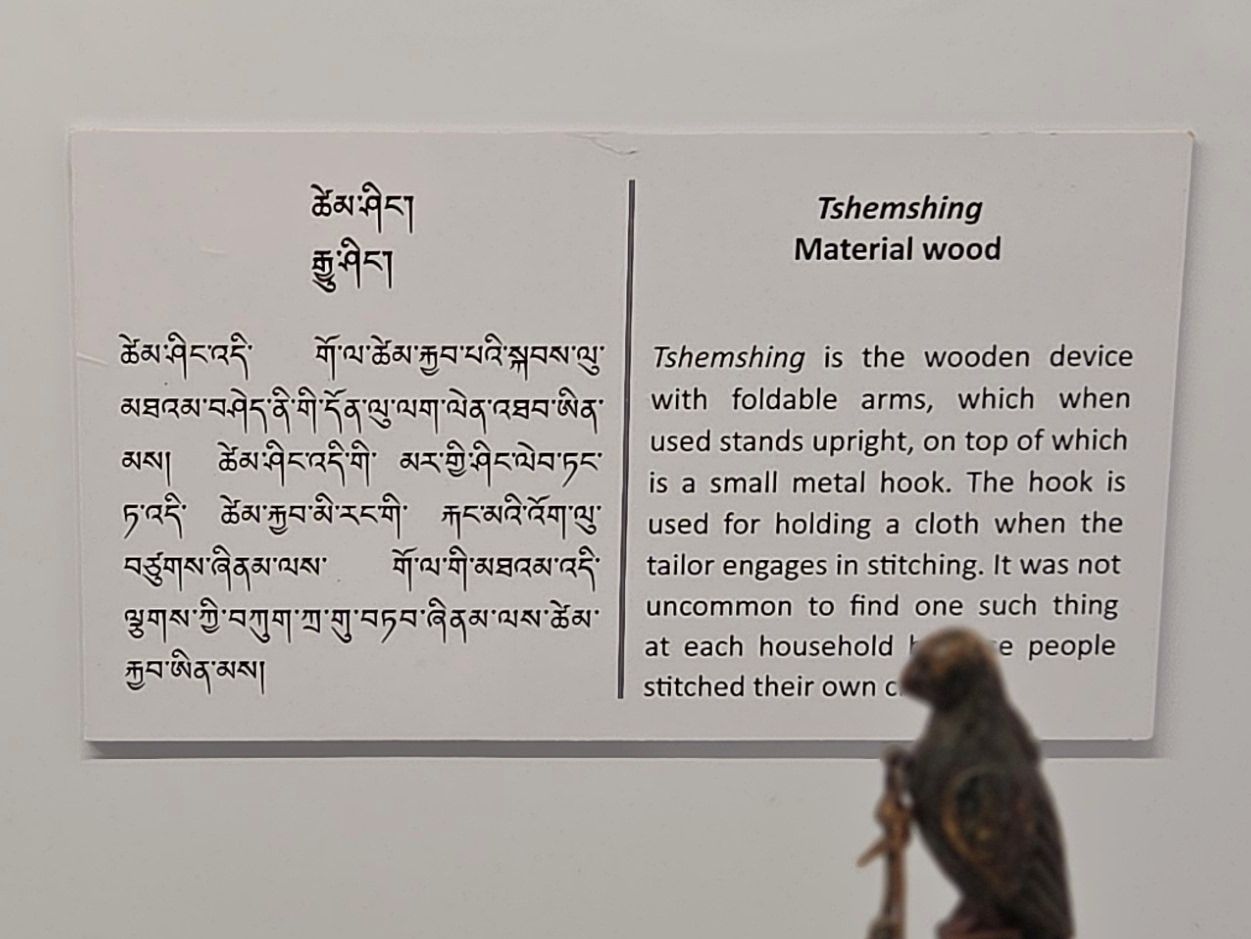 ཚེམ་ཤིང།
རྒྱུ་ཤིང།
ཚེམ་ཤིང་འདི་ གོ་ལ་ཚེམ་རྐྱབ་པའི་སྐབས་ལུ་
མཐའམ་བཤེད་ནི་གི་དོན་ལུ་ལག་ལེན་འཐབ་ཨིན་
མས། ཚེམ་ཤིང་འདི་གི་ མར་གྱི་ཤིང་ལེབ་ཏང་
ཏ་འདི་ ཚེམ་རྐྱབ་མི་རང་གི་ རྐང་མའི་འོག་ལུ་
བཙུགས་ཞིནམ་ལས་ གོ་ལ་གི་མཐའམ་འདི་
ལྕགས་ཀྱི་བཀུག་ཀྲ་གུ་བཏབ་ཞིནམ་ལས་ཚེམ་
རྐྱབ་ཨིན་མས།
Tshemshing
Material wood
Tshemshing is the wooden device
with foldable arms, which when
used stands upright, on top of which
is a small metal hook. The hook is
used for holding a cloth when the
tailor engages in stitching. It was not
uncommon to find one such thing
at each household people
stitched their own